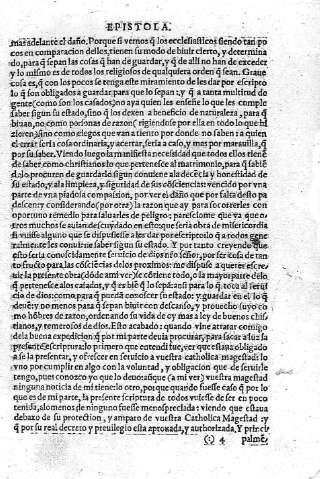 EPISTOLA.
mas adelante el daño. Porque si vemos q̃ los ecclesiasticos siendo tan po
cos en comparacion dellos, tienen su modo de biuir cierto, y determina
do, para q̃ sepan las cosas q̃ han de guardar, y q̃ de alli no han de exceder
y lo mismo es de todos los religiosos de qualquiera orden q̃ sean. Graue
cosa es, q̃ con los pocos se tenga este miramiento de les dar por escripto
lo q̃ son obligados a guardar para que lo sepan: y q̃ a tanta multitud de
gente (como son los casados) no aya quien les enseñe lo que les cumple
saber segun su estado, sino q̃ los dexen a beneficio de naturaleza, para q̃
biuan, no como personas de razon (rigiendose por ella en todo lo que hi
zieren) sino como ciegos que van a tiento por donde no saben: a quien
el errar seria cosa ordinaria, y acertar, seria a caso, y mas por marauilla, q̃
por su saber. Viendo luego la manifiesta necesidad que todos ellos tiene
de saber como christianos lo que pertenesce al matrimonio, para q̃ sabie
dolo procuren de guardarlo segun contiene a la decēcia y honestidad de
su estado, y a la limpieza, y siguridad de sus cōsciencias: vencido por vna
parte de vna piadosa compassion, por ver el daño que por falta desto pa
descen: y considerando (por otra) la razon que ay para socorrerles con
oportuno remedio para saluarles de peligro: paresciome que ya que o-
tros muchos se auian descuydado en esto que seria obra de misericordia
si vuisse alguno que se dispusiesse a les dar por escripto lo q̃ a todos gene
ralmente les conuiene saber segun su estado. Y por tanto creyendo q̃ en
esto seria conoscidamente seruicio de dios nr̃o señor, por ser cosa de tan
to fructo para las cōsciēcias de los proximos: me dispuse a querer escre-
uir la presente obra (dōde a mi ver) se cōtiene todo, o la mayor parte dello
q̃ pertenesce a los casados, y q̃ es biē q̃ lo sepā: assi para lo q̃ toca al serui
cio de dios: como para q̃ puedā conoscer su estado: y guardar en el lo q̃
deuē: y no menos para q̃ sepan biuir con descanso, y prouecho suyo co
mo hōbres de razon, ordenando su vida de oy mas a ley de buenos chris
tianos, y temerosos de dios. Esto acabado: quando vine a tratar comigo
dela buena expedicion q̃ por mi parte deuia procurar, para sacar a luz la
presente escriptura: lo primero que entendi fue, ver que estaua obligado
a se la presentar, y offrescer en seruicio a vuestra catholica magestad: lo
vno por cumplir en algo con la voluntad, y obligacion que de seruirle
tengo, pues conozco yo que lo deuo: aunque (a mi ver) vuestra magestad
ninguna noticia de mi tiene: lo otro, porque quando fuesse caso q̃ por lo
que es de mi parte, la presente scriptura de todos vuiesse de ser en poco
tenida, alomenos de ninguno fuesse menospreciada: viendo que estaua
debaxo de su protection, y amparo de vuestra Catholica Magestad: y
q̃ por su real decreto y preuilegio esta aprouada, y authorizada. Y princi
(;) 4 palme